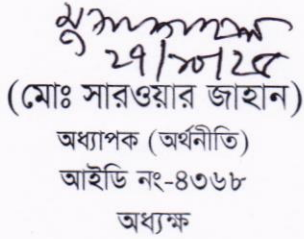 ২৭/১০/২৫
(মোঃ সারওয়ার জাহান)
অধ্যাপক (অর্থনীতি)
আইডি নং-৪৩৬৮
অধ্যক্ষ